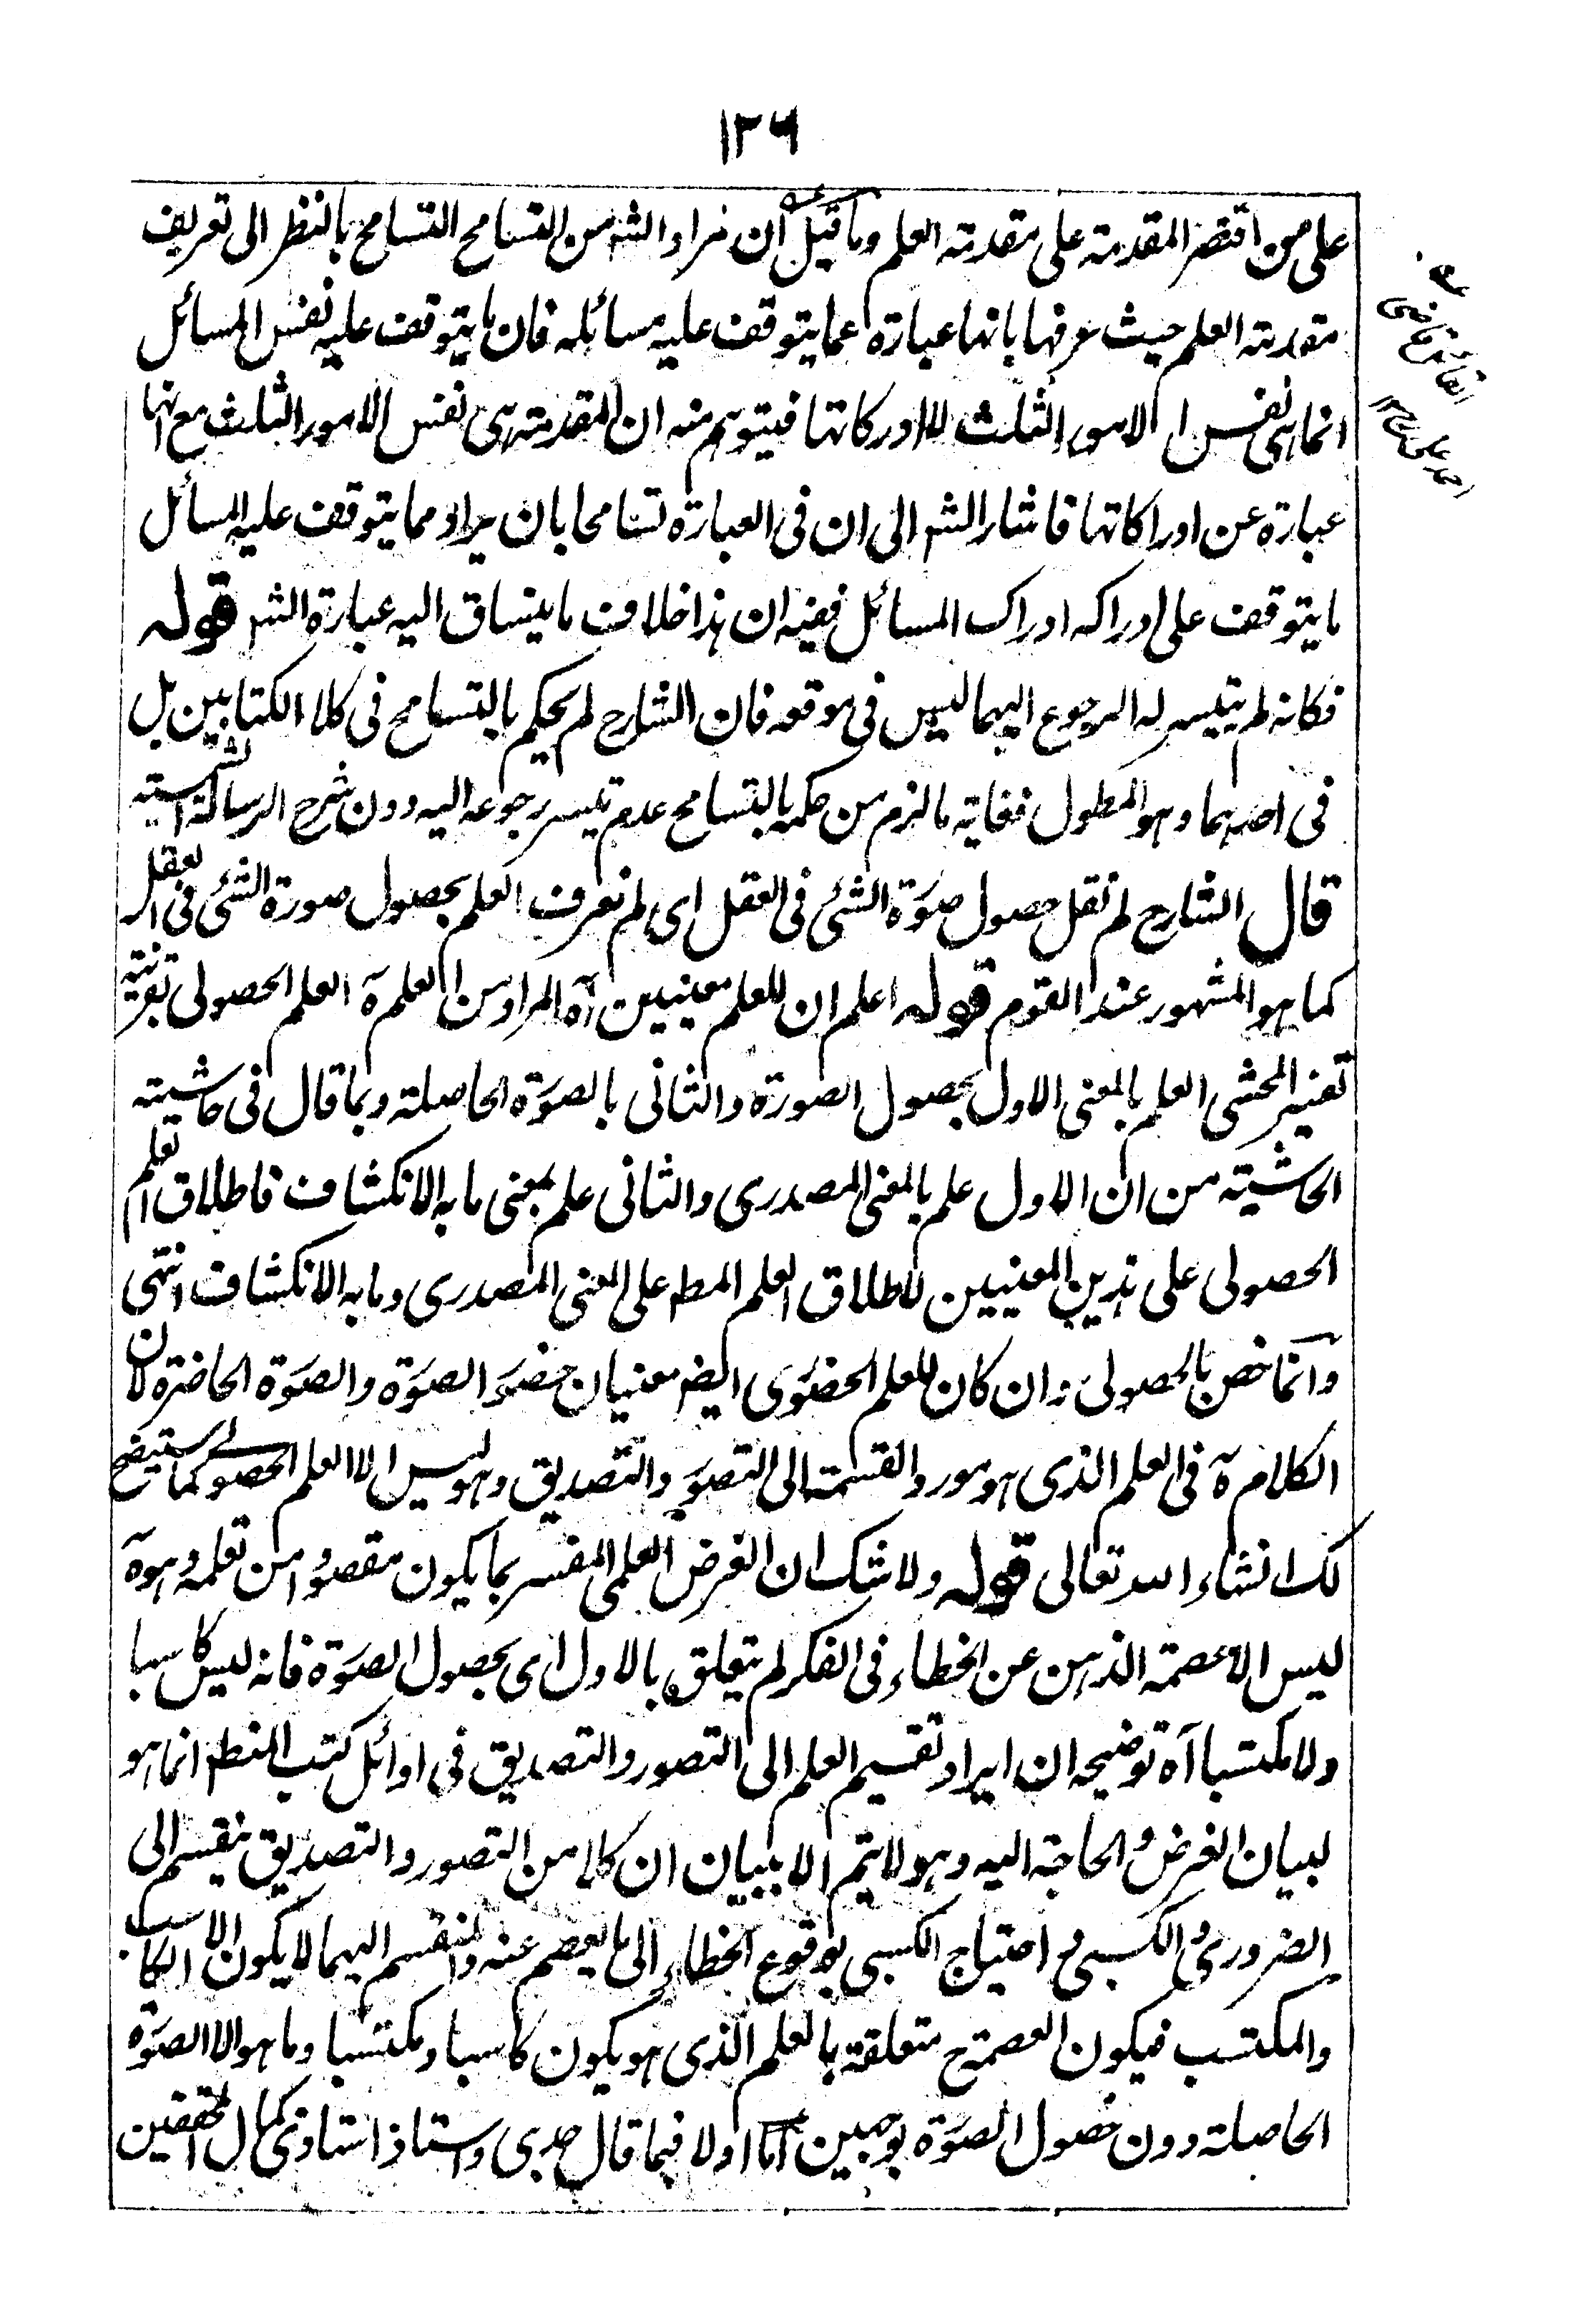 ١٣٦
على من اقتصر المقدمة على مقدمة العلم وما قيل ان مراد الشه من التسامح التسامح بالنظر الى تعريف
مقدمة العلم حيث عرفها بانها عبارة عما يتوقف عليه مسائله فان ما يتوقف عليه نفس المسائل
انما هى نفس الامور الثلث لا ادركاتها فيتوهم منه ان المقدمة هى نفس الامور الثلث مع انها
عبارة عن ادراكاتها فاشار الشه الى ان فى العبارة تسامحا بان يراد مما يتوقف عليه المسائل
ما يتوقف على ادراكه ادراك المسائل ففيه ان هذا خلاف ما ينساق اليه عبارة الشه قوله
فكانه لم يتيسر له الرجوع اليهما ليس فى موقعه فان الشارح لم يحكم بالتسامح فى كلا الكتابين بل
فى احدهما وهو المطول فغاية ما لزم من حكمه بالتسامح عدم تيسر رجوعه اليه دون شرح الرسالة الشمسية
قال الشارح لم نقل حصول صورة الشئ فى العقل اى لم نعرف العلم بحصول صورة الشئ فى العقل
كما هو المشهور عند القوم قوله اعلم ان للعلم معنيين آه المراد من العلم ه العلم الحصولى بقرينة
تفسير المحشى العلم بالمعنى الاول بحصول الصورة والثانى بالصورة الحاصلة وبما قال فى حاشية
الحاشية من ان الاول علم بالمعنى المصدرى والثانى علم بمعنى ما به الانكشاف فاطلاق العلم
الحصولى على هذين المعنيين كاطلاق العلم المط على المعنى المصدرى وما به الانكشاف انتهى
وانما خص بالحصولى وان كان للعلم الحضورى ايضا معنيان حضور الصورة والصورة الحاضرة لان
الكلام ه فى العلم الذى هو مورد القسمة الى التصور والتصديق وهو ليس الا العلم الحصولى كما سيتضح
لك انشاء الله تعالى قوله ولا شك ان الغرض العلمى المفسر بما يكون مقصودا من تعلمه وهو ه
ليس الا عصمة الذهن عن الخطاء فى الفكر لم يتعلق بالاول اى بحصول الصورة فانه ليس كاسبا
ولا مكتسبا آه توضيحه ان ايراد تقسيم العلم الى التصور والتصديق فى اوائل كتب المنط انما هو
لبيان الغرض والحاجة اليه وهو لا يتم الا ببيان ان كلا من التصور والتصديق ينقسم الى
الضرورى والكسبى و احتياج الكسبى بوقوع الخطاء الى ما يعصم عنه والمنقسم اليهما لا يكون الا الكاسب
والمكتسب فيكون العصمة ح متعلقة بالعلم الذى هو يكون كاسبا ومكتسبا وما هو الا الصورة
الحاصلة دون حصول الصورة بوجهين اما اولا فبما قال جدى واستاذ استاذى كمال المحققين